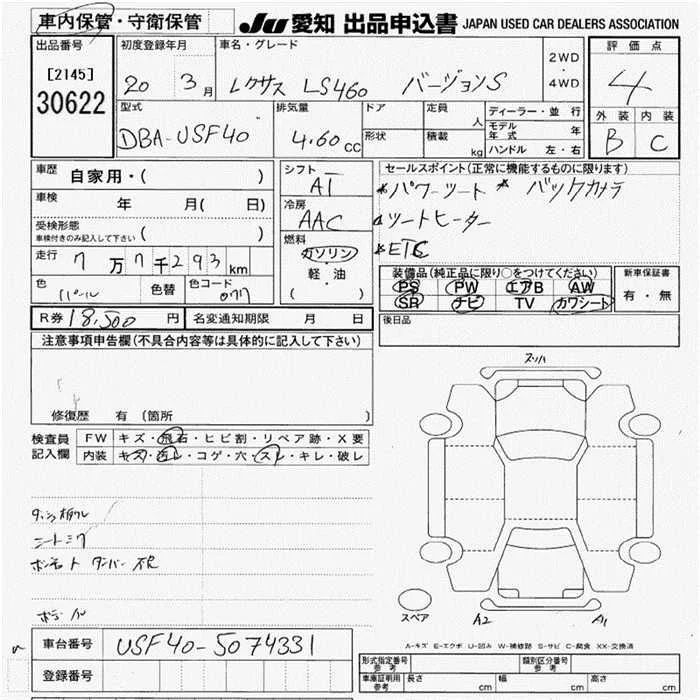 車内保管・守衛保管 JU 愛知 出品申込書 JAPAN USED CAR DEALERS ASSOCIATION
出品番号
[2145]
30622
初度登録年月
20 3月
車名・グレード
レクサス LS460 バージョンS
2WD
・
4WD
評価点
4
外装 内装
B C
型式
DBA-USF40
排気量
4.60cc
ドア
形状
定員 人
積載 kg
ディーラー・並行
モデル年式 年
ハンドル 左・右
車歴 自家用・( )
車検 年 月( 日)
受検形態
車検付きのみ記入して下さい
走行 7万7千293km
色 パール 色替 色コード 077
シフト
AT
冷房
AAC
燃料
ガソリン
・
軽・油
( )
セールスポイント(正常に機能するものに限ります)
*パワーシート *バックカメラ
シートヒーター
*ETC
装備品(純正品に限り○をつけてください)
PS PW エアB AW
SR ナビ TV カワシート
新車保証書
有・無
R券 18,500円 名変通知期限 月 日
後日品
注意事項申告欄(不具合内容等は具体的に記入して下さい)
修復歴 有 (箇所 )
検査員
記入欄
FW キズ・飛石・ヒビ割・リペア跡・X要
内装 キズ・汚レ・コゲ・穴・スレ・キレ・破レ
ボンネットダンパー不良
スペア
A2 A1
A-キズ E-エクボ U-凹み W-補修跡 S-サビ C-腐食 XX-交換済
車台番号 USF40-5074331
登録番号
形式指定番号
参考
類別区分番号
参考
車庫証明用
参考
長さ cm 幅 cm 高さ cm